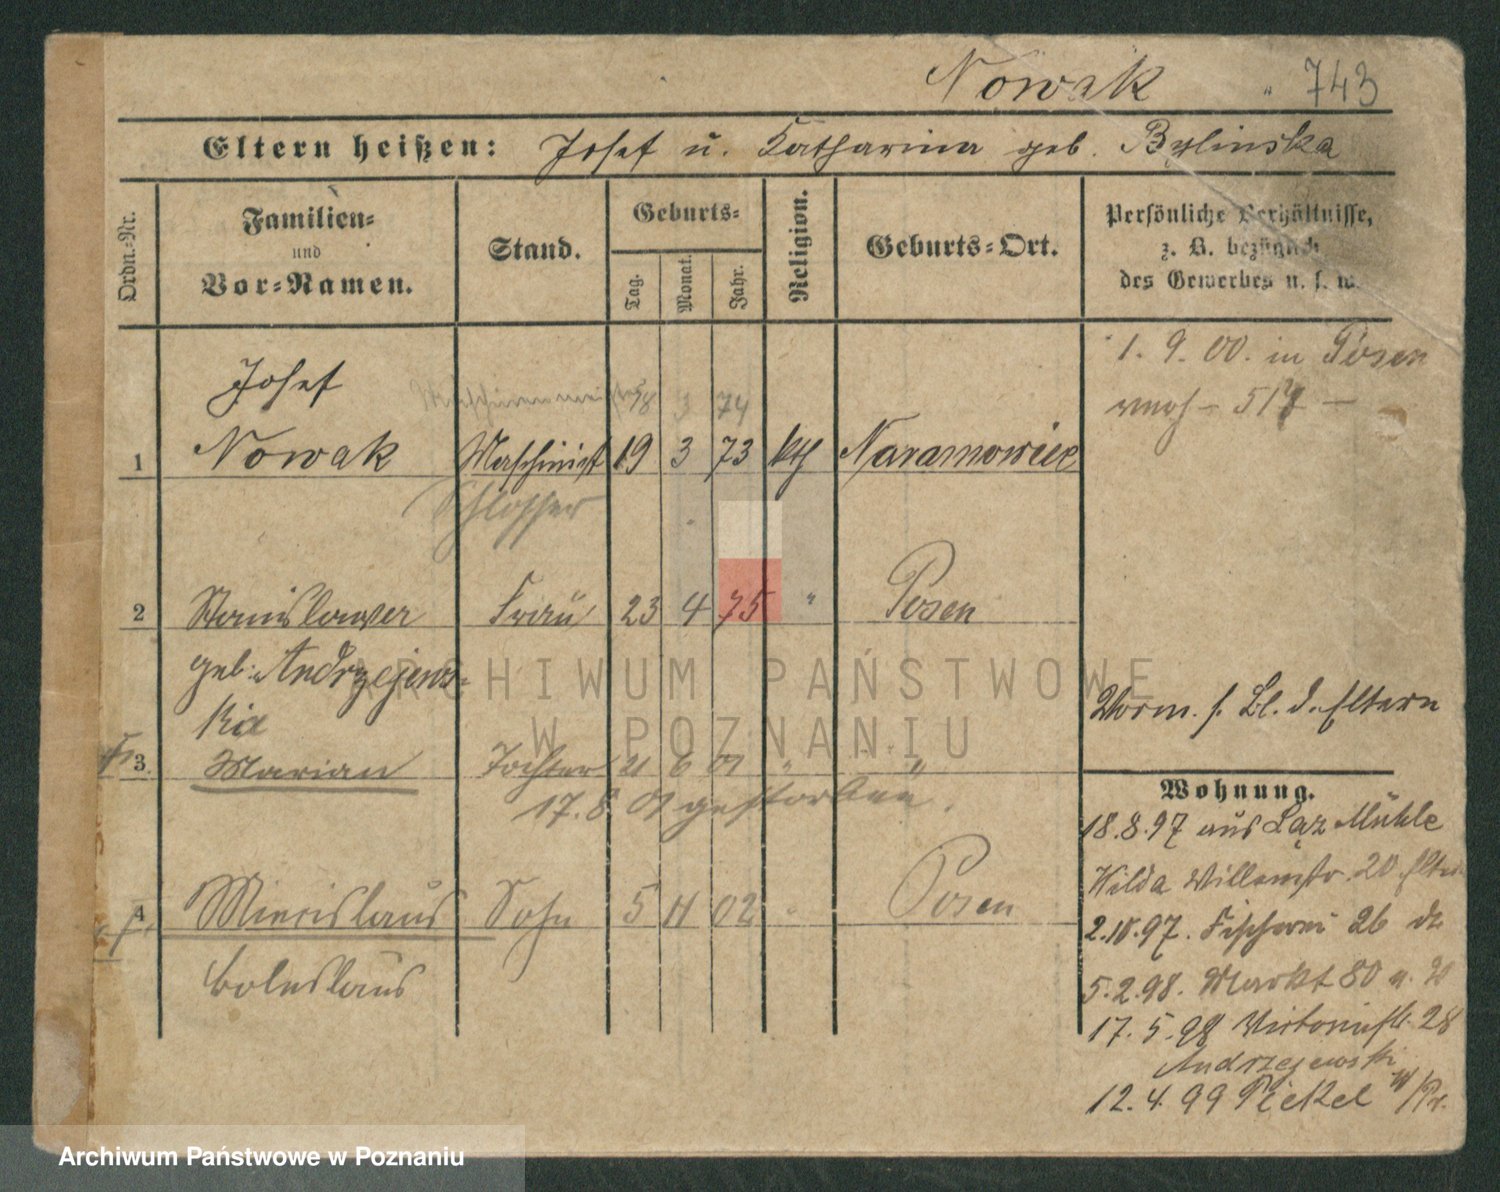 Nowak " 743
Eltern heißen: Josef u. Katharina geb. Bylinska
Ordn.-Nr.
Familien- und Vor-Namen.
Stand.
Geburts-
Tag.
Monat.
Jahr.
Religion.
Geburts-Ort.
Persönliche Verhältnisse,
z. B. bezüglich
des Gewerbes u. s. w.
1. 9. 00. in Posen
Josef
3 74
1 Nowak Maschinist 19 3 73 kth Naramowice
Schlosser
2 Stanislawa Frau 23 4 75 " Posen
geb. Andrzejews-
kia
Vorm. s. Bl. d. Eltern
3 Marian Tochter 21 6 01 " "
17. 8. 01 gestorben.
Wohnung.
18.8.97 aus Laz Mühle
4 Miecislaus Sohn 5 11 02 " Posen
Boleslaus
Wilda Willemstr. 20 Eltern
2.10.97. Fischerei 26 dz
5.2.98. Markt 80
17. 5. 98 Victoriastr. 28
Andrzejewski
12. 4. 99 Piekel W/Pr.
ARCHIWUM PAŃSTWOWE
W POZNANIU
Archiwum Państwowe w Poznaniu